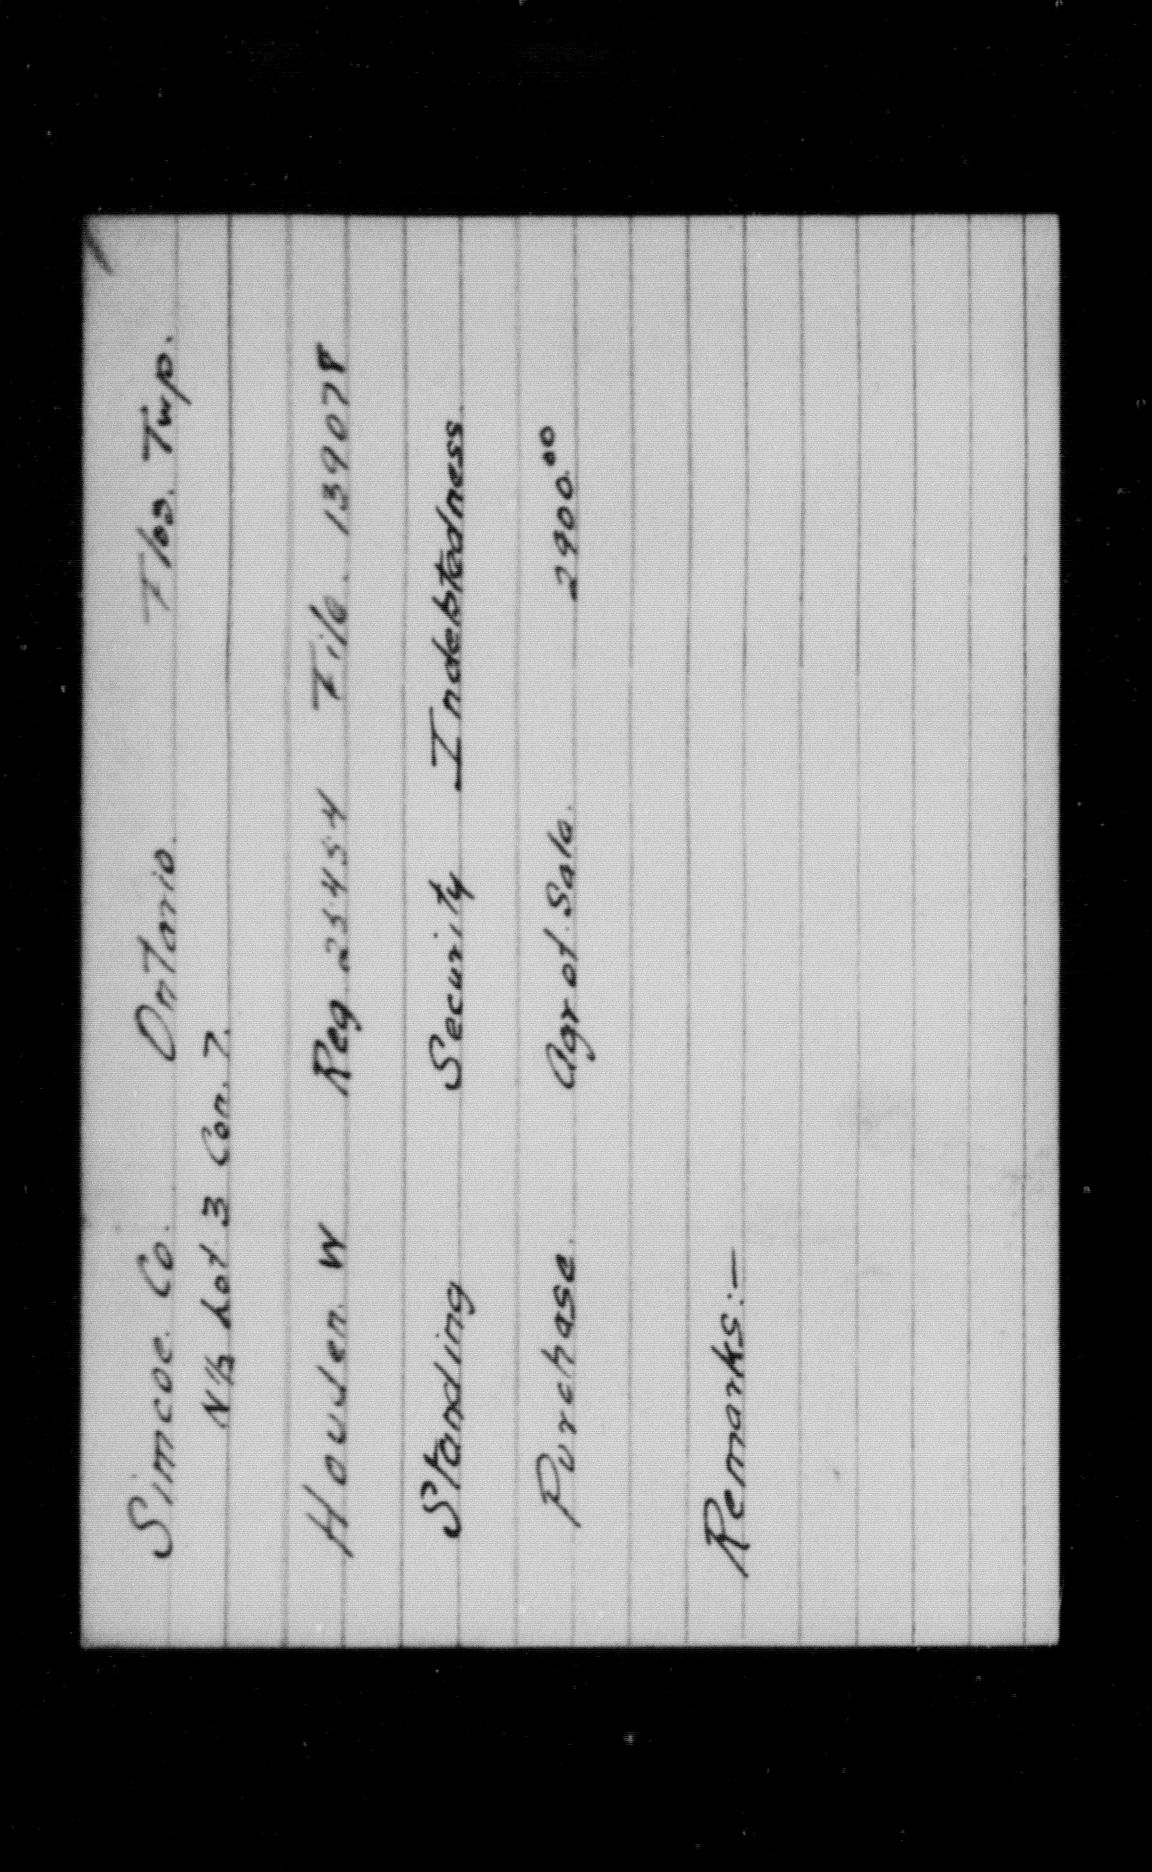 Simcoe. Co. Ontario. Flos. Twp.
N½ Lot 3 Con. 7.
Howden. W Reg. 25454 File. 139078
Standing Security Indebtedness.
Purchase. Agr of. Sale. 2900.00
Remarks:—